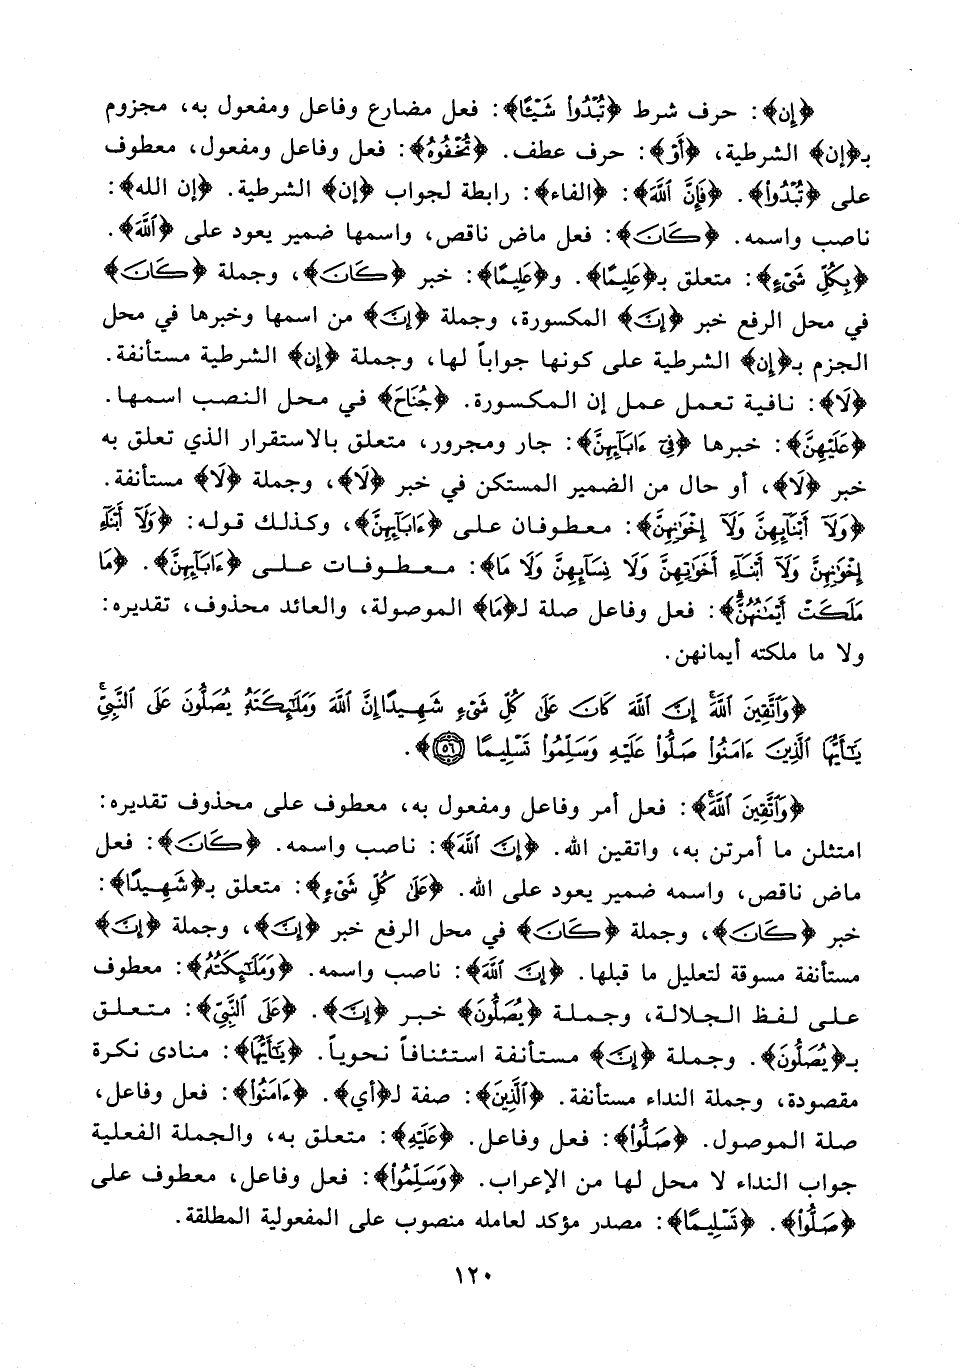 ﴿إن﴾: حرف شرط ﴿تُبْدُوا۟ شَيْـًٔا﴾: فعل مضارع وفاعل ومفعول به، مجزوم
بـ﴿إن﴾ الشرطية، ﴿أَوْ﴾: حرف عطف. ﴿تُخْفُوهُ﴾: فعل وفاعل ومفعول، معطوف
على ﴿تُبْدُوا۟﴾. ﴿فَإِنَّ ٱللَّهَ﴾: ﴿الفاء﴾: رابطة لجواب ﴿إن﴾ الشرطية. ﴿إن الله﴾:
ناصب واسمه. ﴿كَانَ﴾: فعل ماض ناقص، واسمها ضمير يعود على ﴿ٱللَّهَ﴾.
﴿بِكُلِّ شَىْءٍ﴾: متعلق بـ﴿عَلِيمًا﴾. و﴿عَلِيمًا﴾: خبر ﴿كَانَ﴾، وجملة ﴿كَانَ﴾
في محل الرفع خبر ﴿إِنَّ﴾ المكسورة، وجملة ﴿إِنَّ﴾ من اسمها وخبرها في محل
الجزم بـ﴿إن﴾ الشرطية على كونها جواباً لها، وجملة ﴿إن﴾ الشرطية مستأنفة.
﴿لَّا﴾: نافية تعمل عمل إن المكسورة. ﴿جُنَاحَ﴾ في محل النصب اسمها.
﴿عَلَيْهِنَّ﴾: خبرها ﴿فِىٓ ءَابَآئِهِنَّ﴾: جار ومجرور، متعلق بالاستقرار الذي تعلق به
خبر ﴿لَا﴾، أو حال من الضمير المستكن في خبر ﴿لَا﴾، وجملة ﴿لَا﴾ مستأنفة.
﴿وَلَآ أَبْنَآئِهِنَّ وَلَآ إِخْوَٰنِهِنَّ﴾: معطوفان على ﴿ءَابَآئِهِنَّ﴾، وكذلك قوله: ﴿وَلَآ أَبْنَآءِ
إِخْوَٰنِهِنَّ وَلَآ أَبْنَآءِ أَخَوَٰتِهِنَّ وَلَا نِسَآئِهِنَّ وَلَا مَا﴾: معطوفات على ﴿ءَابَآئِهِنَّ﴾. ﴿مَا
مَلَكَتْ أَيْمَٰنُهُنَّ﴾: فعل وفاعل صلة لـ﴿مَا﴾ الموصولة، والعائد محذوف، تقديره:
ولا ما ملكته أيمانهن.
﴿وَٱتَّقِينَ ٱللَّهَ ۚ إِنَّ ٱللَّهَ كَانَ عَلَىٰ كُلِّ شَىْءٍ شَهِيدًا إِنَّ ٱللَّهَ وَمَلَٰٓئِكَتَهُۥ يُصَلُّونَ عَلَى ٱلنَّبِىِّ ۚ
يَٰٓأَيُّهَا ٱلَّذِينَ ءَامَنُوا۟ صَلُّوا۟ عَلَيْهِ وَسَلِّمُوا۟ تَسْلِيمًا ٥٦﴾.
﴿وَٱتَّقِينَ ٱللَّهَ ۚ﴾: فعل أمر وفاعل ومفعول به، معطوف على محذوف تقديره:
امتثلن ما أمرتن به، واتقين الله. ﴿إِنَّ ٱللَّهَ﴾: ناصب واسمه. ﴿كَانَ﴾: فعل
ماض ناقص، واسمه ضمير يعود على الله. ﴿عَلَىٰ كُلِّ شَىْءٍ﴾: متعلق بـ﴿شَهِيدًا﴾:
خبر ﴿كَانَ﴾، وجملة ﴿كَانَ﴾ في محل الرفع خبر ﴿إِنَّ﴾، وجملة ﴿إِنَّ﴾
مستأنفة مسوقة لتعليل ما قبلها. ﴿إِنَّ ٱللَّهَ﴾: ناصب واسمه. ﴿وَمَلَٰٓئِكَتَهُۥ﴾: معطوف
على لفظ الجلالة، وجملة ﴿يُصَلُّونَ﴾ خبر ﴿إِنَّ﴾. ﴿عَلَى ٱلنَّبِىِّ﴾: متعلق
بـ﴿يُصَلُّونَ﴾. وجملة ﴿إِنَّ﴾ مستأنفة استئنافاً نحوياً. ﴿يَٰٓأَيُّهَا﴾: منادى نكرة
مقصودة، وجملة النداء مستأنفة. ﴿ٱلَّذِينَ﴾: صفة لـ﴿أي﴾. ﴿ءَامَنُوا۟﴾: فعل وفاعل،
صلة الموصول. ﴿صَلُّوا۟﴾: فعل وفاعل. ﴿عَلَيْهِ﴾: متعلق به، والجملة الفعلية
جواب النداء لا محل لها من الإعراب. ﴿وَسَلِّمُوا۟﴾: فعل وفاعل، معطوف على
﴿صَلُّوا۟﴾. ﴿تَسْلِيمًا﴾: مصدر مؤكد لعامله منصوب على المفعولية المطلقة.
١٢٠